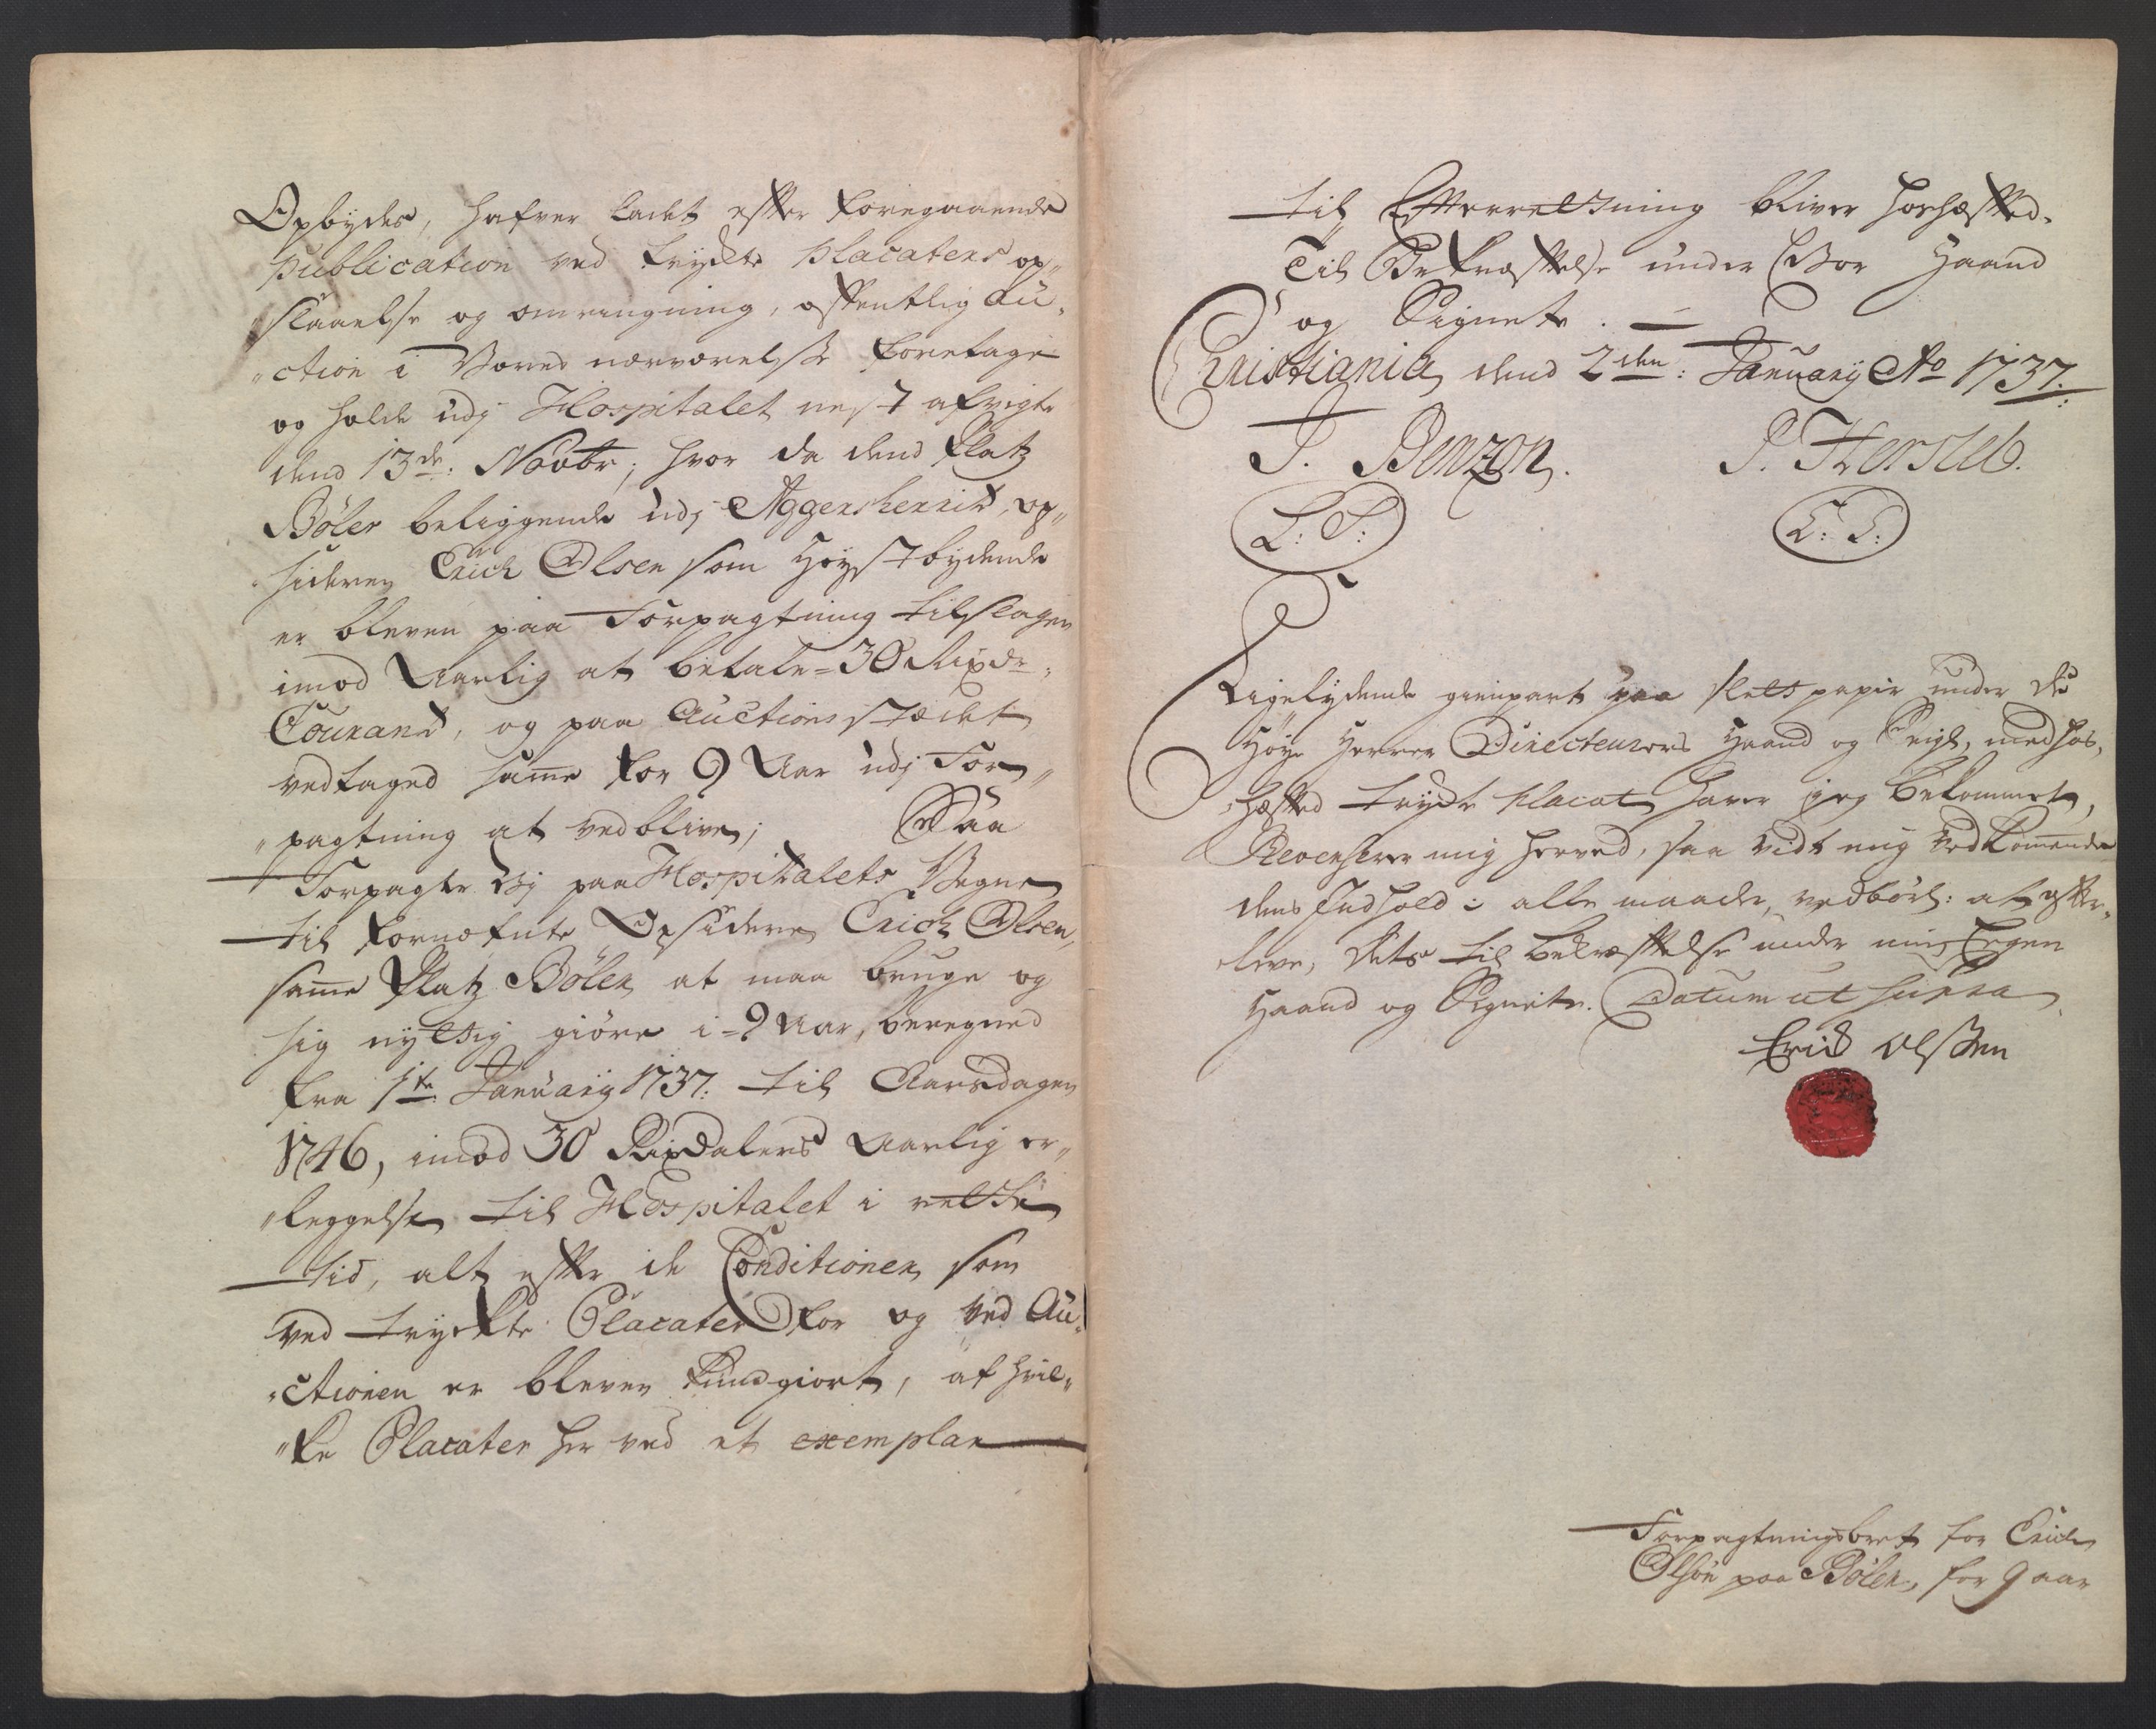 Opbydes, hafver ladet efter foregaaende
publication ved trychte placaters op„
„slaaelse og omringning, offentlig Au„
„ction i Vores nærværelse foretage
og holde udj Hospitalet nest afvigte
dend 13de: Novbr; hvor da dend Platz
Bøler beliggende udj Aggersherrit, op„
„sideren Erich Olsen som Høystbydende
er bleven paa Forpagtning tilslagen
imod Aarlig at betale = 30 Rixdr.
Courant, og paa Auctionsstædet
vedtaged samme for 9 Aar udj For„
„pagtning at vedblive; Saa
Forpagte Vj paa Hospitalets Vegne
til fornefnte Opsidere Erich Olsen,
samme Platz Bøler at maa bruge og
sig nyttig giøre i = 9 Aar, beregned
fra 1te January 1737. til Aarsdagen
1746, imod 30 Rixdalers Aarlig er„
„leggelse til Hospitalet i rette
tid, alt efter de Conditioner som
ved tryckte Placater for og ved Au„
„ctionen er bleven kundgiort, af hvil„
„ke Placater her ved et exemplar
til Efterretning bliver hoshæfted.
Til Bekræftelse under Vor Haand
og Signete.
Christiania dend 2den: January Ao 1737.
J. Benzon. P. Hersleb.
L: S: L: S:
Ligelydende gienpart paa slett papir under de
Høye Herrer Directeurers Haand og Seigl, med hos„
„hæfted trygte placat haver jeg bekommet,
Reverserer mig herved, saa vidt mig vedkommende
dens Indhold i alle maader, vedbørl: at efter„
„leve, Dets til bekræftelse under min Egen
Haand og Signete. Datum ut supra
Erich Olssen
Forpagtningsbref for Erich
Olsøn paa Bøler, for 9 aar